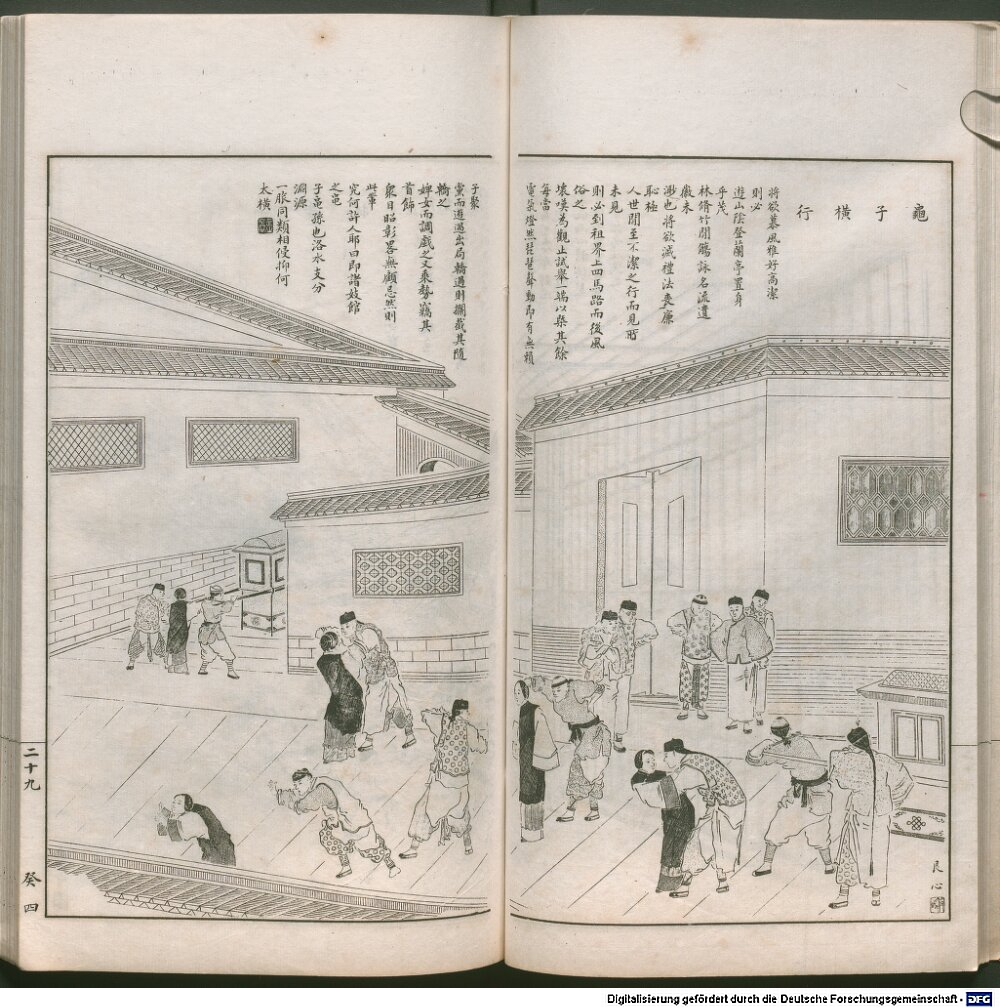 龜子橫行
將欲慕風雅好高潔
則必
遊山陰登蘭亭置身
乎茂
林脩竹間觴詠名流遺
徽未
渺也將欲滅禮法喪廉
恥極
人世間至不潔之行而見所
未見
則必到租界上四馬路而後風
俗之
壞嘆為觀止試舉一端以槩其餘
每當
電氣燈然琵琶聲動即有無賴
子聚
黨而遊遇出局轎過則攔截其隨
轎之
婢女而調戲之又乘勢竊其
首飾
衆目昭彰畧無顧忌然則
此輩
究何許人耶曰即諸妓館
之龜
子龜孫也洛水支分
洞源
一脈同類相侵抑何
太橫
二十九
癸四
艮心
Digitalisierung gefördert durch die Deutsche Forschungsgemeinschaft - DFG